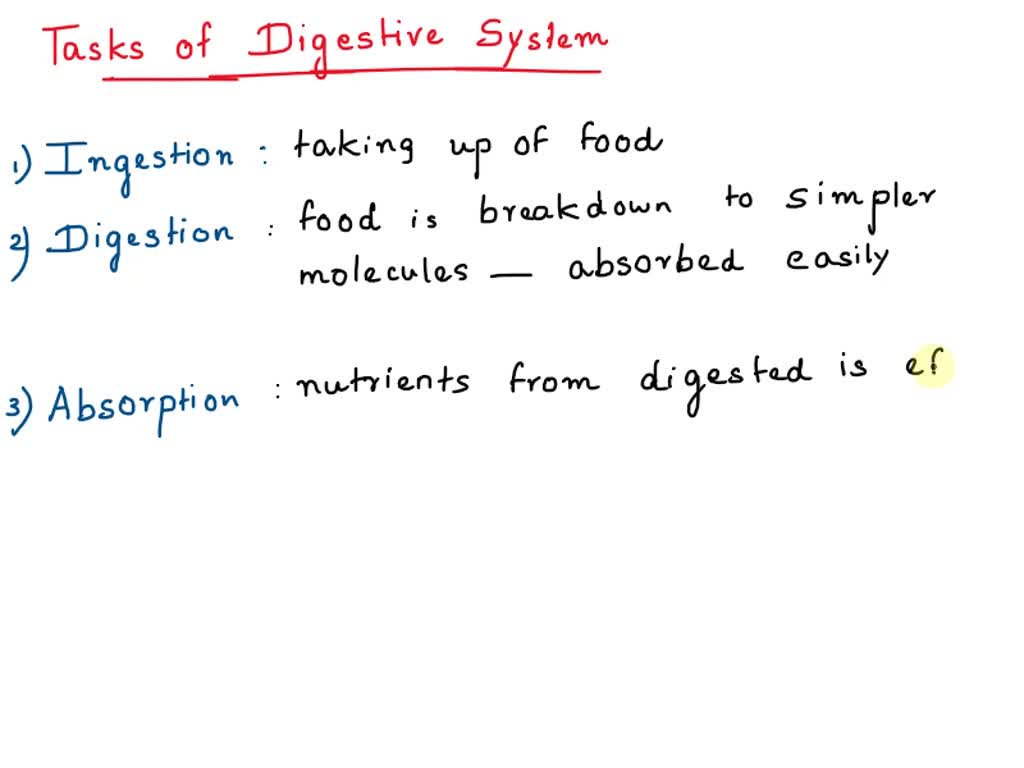 Tasks of Digestive System
1) Ingestion : taking up of food
2) Digestion : food is breakdown to simpler
molecules — absorbed easily
3) Absorption : nutrients from digested is ef